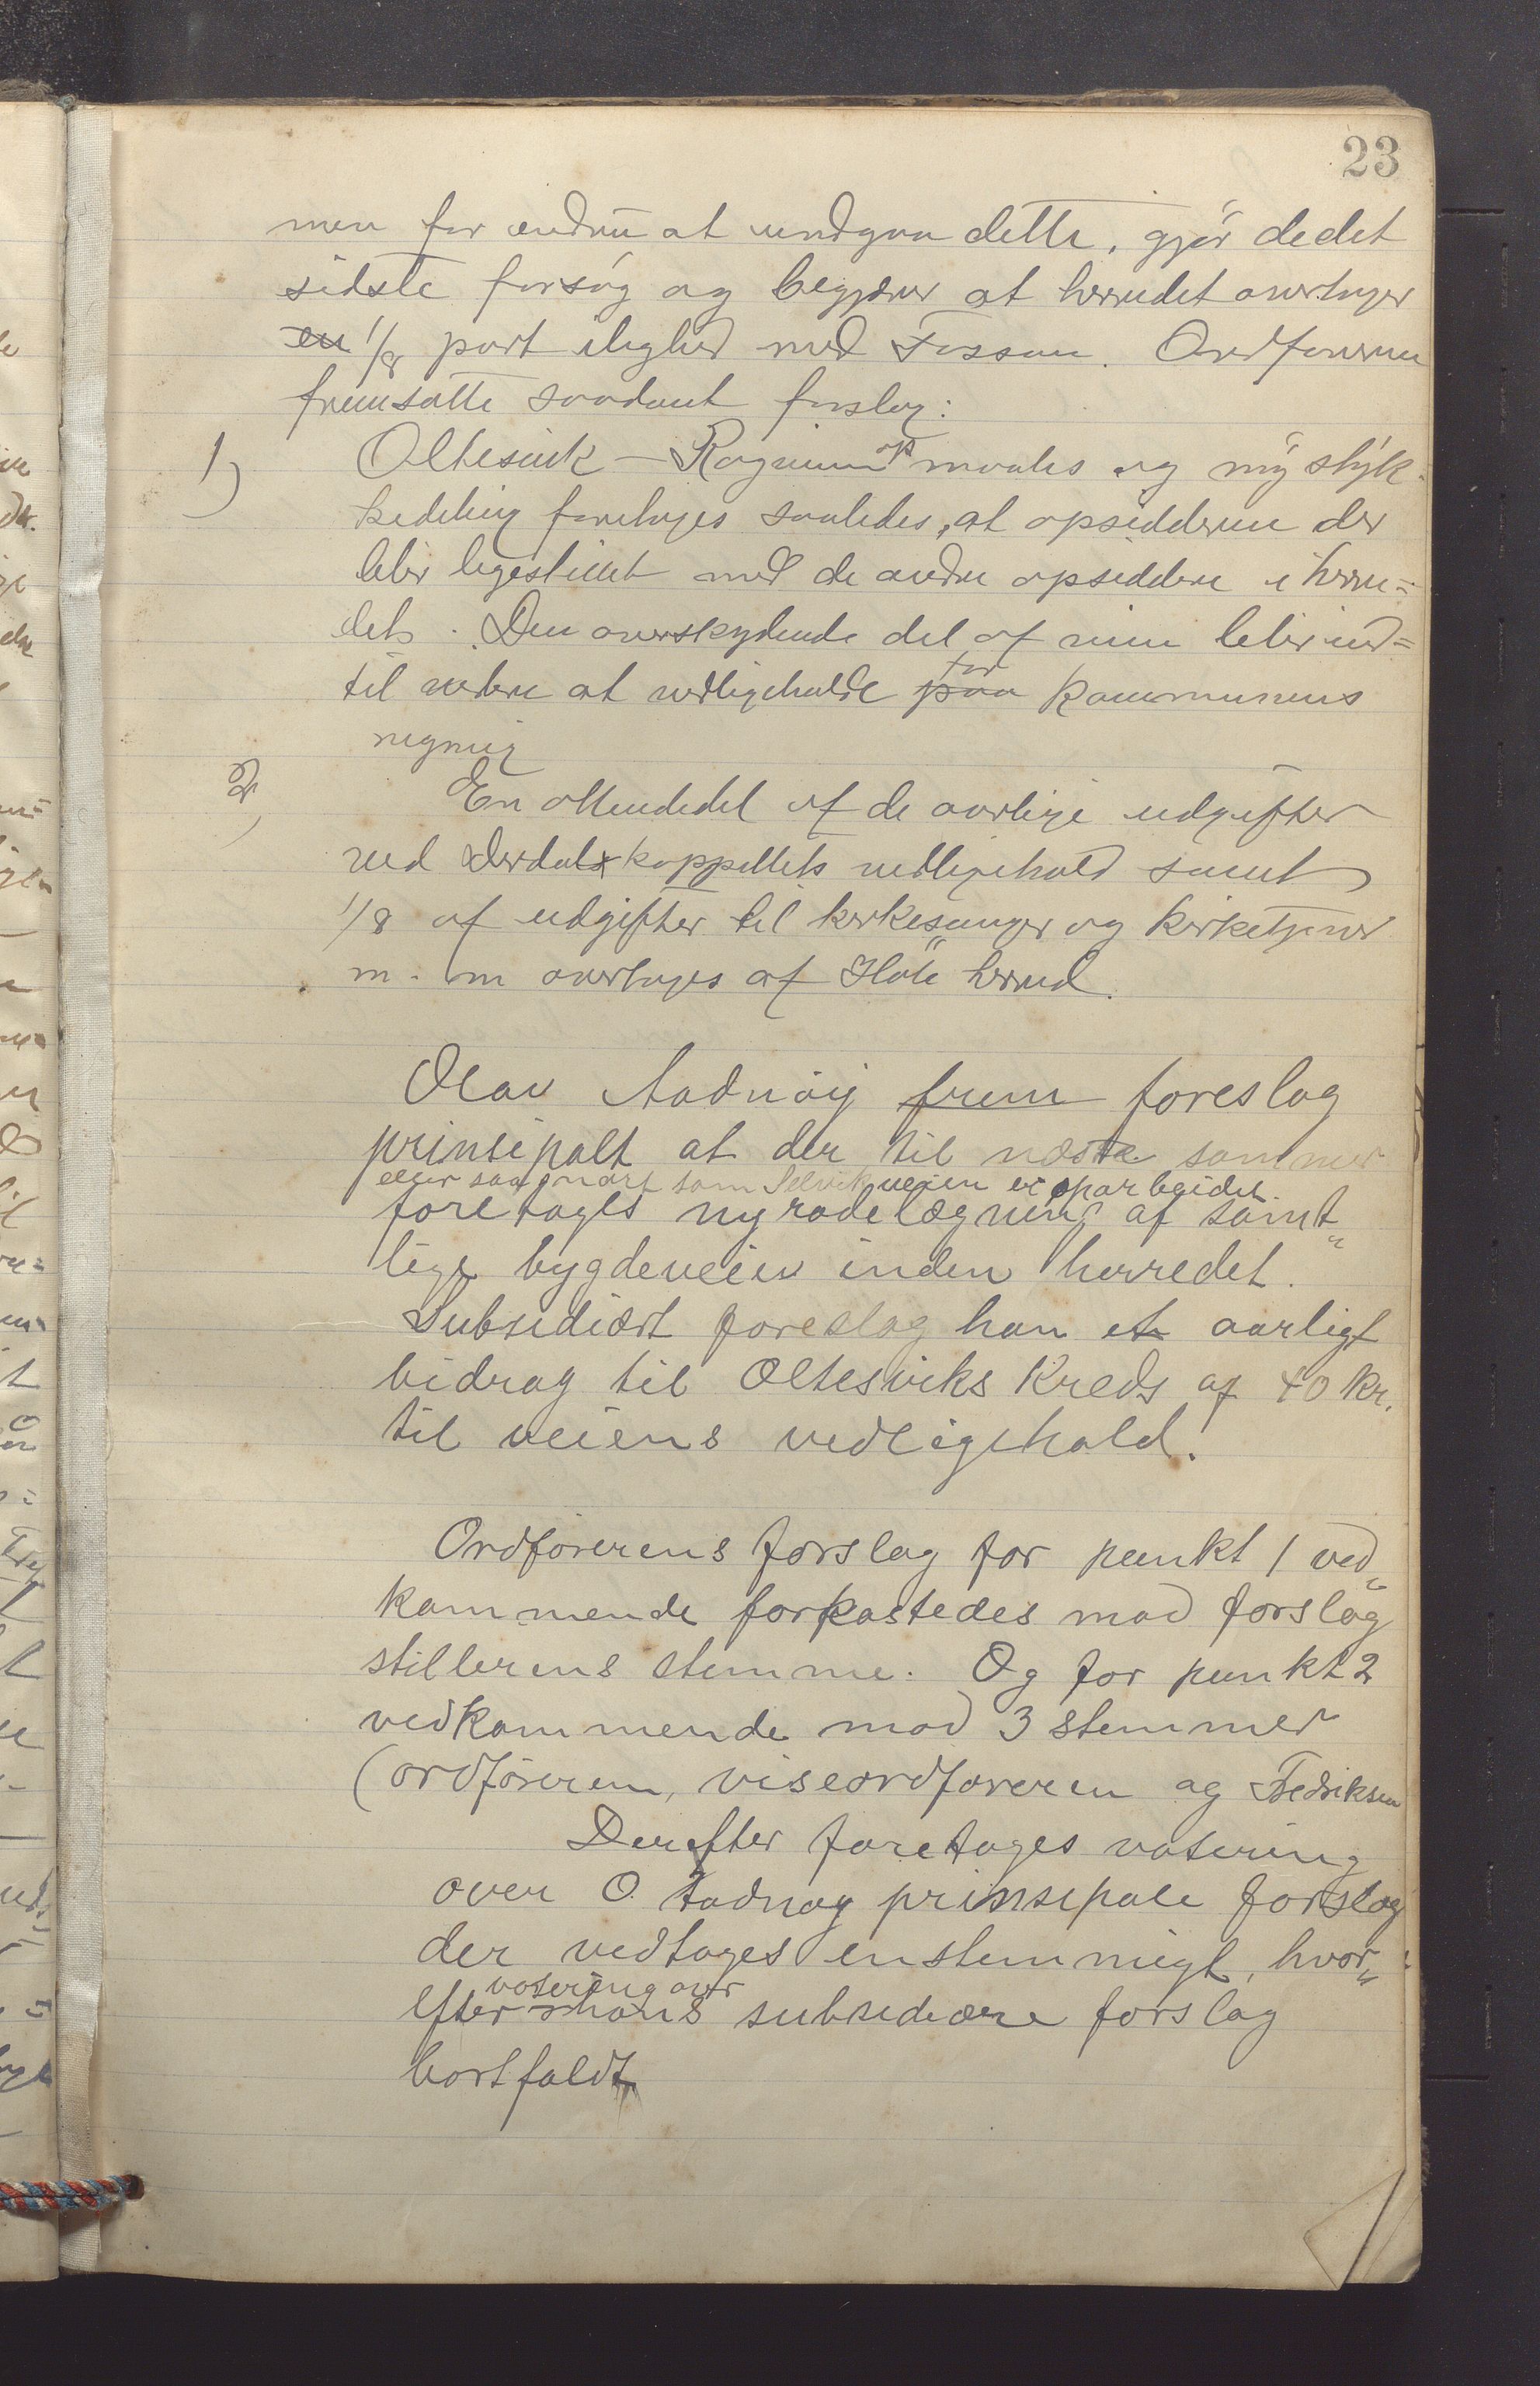 23
men for endnu at undgaa dette, gjør de det
sidste forsøg og begjærer at herredet overtager
en 1/8 part ilighed med Fossan. Ordføreren
fremsatte saadant forslag:
1) Oltesvik – Ragsveien opmaales og ny styk-
kedeling foretages saaledes, at opsidderne der
blir ligestillet med de andre opsiddere i herre=
det. Den overskydende del af veien blir ind=
til videre at vedligeholde paa for kommunens
regning
2) En ottendedel af de aarlige udgifter
ved Dirdals kappellets vedligehold samt
1/8 af udgifter til kirkesanger og kirketjener
m. m overtages af Høle herred.
Olav Aadnøy frem foreslog
prinsipalt at der til næste sommer
eller saa snart som Selvikveien er oparbeidet.
foretages ny rodelægning af samt„
lige bygdeveiev inden herredet.
Subsidiært foreslog han et aarligt
bidrag til Oltesviks Kreds af 40 kr.
til veiens vedligehold.
Ordførerens forslag for punkt 1 ved„
kommende forkastedes mod forslag
stillerens stemme. Og for punkt 2
vedkommende mod 3 stemmer
(ordføreren, viseordføreren og Fredriksen
Derefter foretages votering
over O. Aadnøy prinsipale forslag
der vedtages enstemmigt, hvor„
votering over
efter hans subsediære forslag
bortfaldt